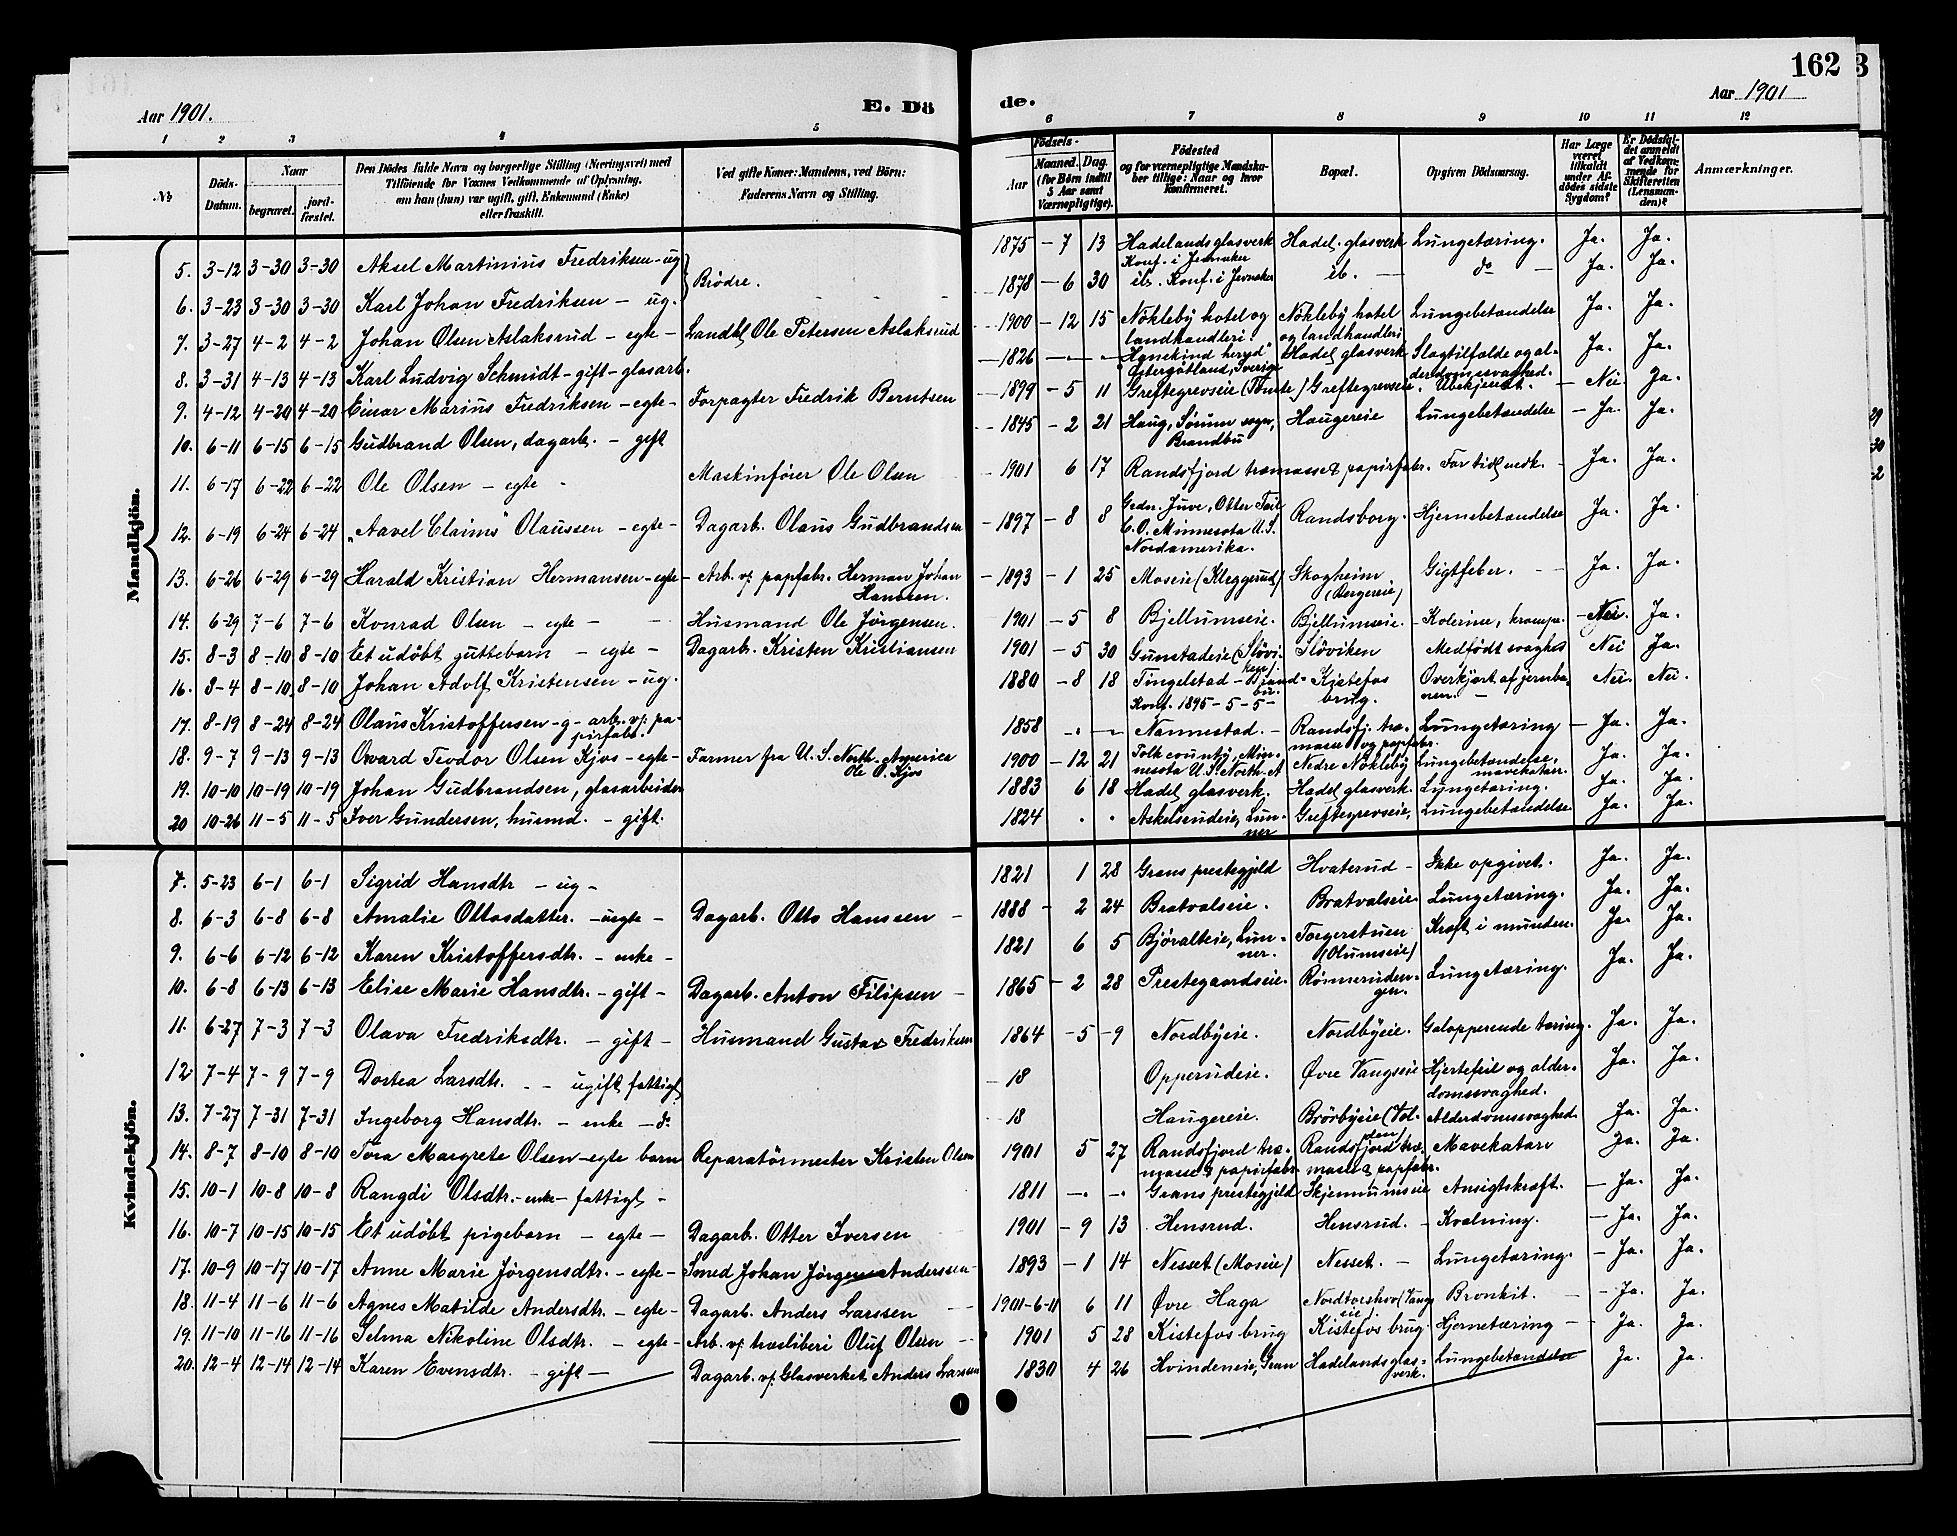 162 3
Aar 1901. E. Dö de. Aar 1901
1 2 3 4 5 6 7 8 9 10 11 12
No
Döds-Datum.
Naar begravet. jordfæstet.
Den Dödes fulde Navn og borgerlige Stilling (Næringsvei) med Tilföiende for Voxnes Vedkommende af Oplysning, om han (hun) var ugift, gift, Enkemand (Enke) eller fraskilt.
Ved gifte Koner: Mandens, ved Börn: Faderens Navn og Stilling.
Födsels-
Aar Maaned. Dag.
(for Börn indtil 5 Aar samt Værnepligtige).
Födested og for værnepligtige Mandskaber tillige: Naar og hvor Konfirmeret.
Bopæl.
Opgiven Dödsaarsag.
Har Læge været tilkaldt under Afdödes sidste Sygdom?
Er Dödsfaldet anmeldt af Vedkommende for Skifteretten (Lensmanden)?
Anmærkninger.
Mandkjön.
5. 3-12 3-30 3-30 Aksel Martinius Fredriksen - ug } Brödre. 1875 - 7 13 Hadelandsglasverk Konf. i Jevnaker Hadel. glasverk Lungetæring. Ja. Ja.
6. 3-23 3-30 3-30 Karl Johan Fredriksen - ug. 1878 - 6 30 ib. Konf. i Jevnaker ib. - do - Ja. Ja.
7. 3-27 4-2 4-2 Johan Olsen Aslaksrud - egte - Landhl. Ole Petersen Aslaksrud 1900 - 12 15 Nökleby hotel og landhandleri. Nökleby hotel og landhandleri Lungebetændelse Ja. Ja.
8. 3-31 4-13 4-13 Karl Ludvig Schmidt - gift - glasarb. 1826 - - - Hgnekind heryd Östergötland, Sverige Hadel. glasverk Slagtilfælde og alderdomssvaghed. Ja. Ja.
9. 4-12 4-20 4-20 Einar Marius Fredriksen - egte - Forpagter Fredrik Berntsen 1899 - 5 11 Greftegrevseie (Tömte) Greftegrevseie. Ubekjendt. - Nei. Ja.
10. 6-11 6-15 6-15 Gudbrand Olsen, dagarb. - gift 1845 - 2 21 Haug, Sörum sogn, Brandbu Haugereie Lungebetændelse - Ja. Ja.
11. 6-17 6-22 6-22 Ole Olsen - egte - Maskinförer Ole Olsen 1901 6 17 Randsfjord træmasse & papirfabr. For tidl. nedk. - Ja. Ja.
12. 6-19 6-24 6-24 „Aavel Claims" Olaussen - egte - Dagarb. Olaus Gudbrandsen 1897 - 8 8 Gedn. Juve, Otter Tail C.O. Minnesota U.S. Nordamerika. Randsborg. Hjernebetændelse Ja. Ja.
13. 6-26 6-29 6-29 Harald Kristian Hermansen - egte - Arb. v/ papfabr. Herman Johan Hanssen. 1893 - 1 25 Moseie (Kleggerud) Skogheim (Bergereie) Gigtfeber. - Ja. Ja.
14. 6-29 7-6 7-6 Konrad Olsen - egte - Husmand Ole Jörgensen. 1901 - 5 8 Bjellumseie. Bjellumseie. - Kolerine, krampe. - Nei. Ja.
15. 8-3 8-10 8-10 Et udöbt guttebarn - egte - Dagarb. Kristen Kristiansen 1901 - 5 30 Gunstadeie (Slöviken). Slöviken Medfödt svaghed Nei Ja.
16. 8-4 8-10 8-10 Johan Adolf Kristensen - ug. 1880 - 8 18 Tingelstad - Brandbu. Konf. 1895 - 5 - 5 - Kistefos brug. Overkjört af jernbanen. - Nei. Nei.
17. 8-19 8-24 8-24 Olaus Kristoffersen - g - arb. v/ papirfabr. 1858 - - Nannestad. - Randsfj. træmasse og papfabr. Lungetæring - Ja. Ja.
18. 9-7 9-13 9-13 Ovard Teodor Olsen Kjos - egte - Farmer fra U.S. North-America Ole O. Kjos 1900 - 12 21 Polk county, Minnesota U.S. North. A Nedre Nökleby Lungebetændelse, mavekatarr. Ja. Ja.
19. 10-10 10-19 10-19 Johan Gudbrandsen, glasarbeider 1883 6 18 Hadel. glasverk. Hadel. glasverk. Lungetæring. Ja. Ja.
20 10-26 11-5 11-5 Iver Gundersen, husmd. - gift. 1824 . . Askelsendeie, Lunner Greftegrevseie, Lungebetændelse Ja. Ja.
Kvindekjön.
7. 5-23 6-1 6-1 Sigrid Hansdtr - ug - 1821 1 28 Grans prestegjeld Hvaterud - Ikke opgivet. Ja. Ja.
8. 6-3 6-8 6-8 Amalie Ottosdatter. - uegte - Dagarb. Otto Hanssen - 1888 - 2 24 Bratvalseie. Bratvalseie Lungetæring. Ja. Ja.
9. 6-6 6-12 6-12 Karen Kristoffersdtr. - enke - 1821 6 5 Björalteie, Lunner. Torgerstuen (Olumseie) Kræft i munden. Ja. Ja.
10. 6-8 6-13 6-13 Elise Marie Hansdtr. - gift - Dagarb. Anton Filipsen - 1865 - 2 28 Prestegaardseie. Rönnerudengen. Lungetæring. Ja. Ja.
11. 6-27 7-3 7-3 Olava Fredriksdtr. - gift - Husmand Gustav Fredriksen 1864 - 5 - 9 Nordbyeie. Nordbyeie. Galopperende tæring. Ja. Ja.
12 7-4 7-9 7-9 Dortea Larsdtr. - - ugift, fattigl. - 18 Opperudeie. Øvre Vangseie Hjertefeil og alderdomssvaghed. Ja. Ja.
13. 7-27 7-31 7-31 Ingeborg Hansdtr. - enke - do. - 18 Haugereie. Brörbyeie (Volden) Alderdomssvaghed. Ja. Ja.
14. 8-7 8-10 8-10 Tora Margrete Olsen - egte barn Reparatörmester Kristen Olsen 1901 5 27 Randsfjord træmasse & papirfabr. Randsfjord træmasse & papfabr. Mavekatarr Ja. Ja.
15. 10-1 10-8 10-8 Rangdi Olsdtr. - enke - fattigl. - 1811 - . - . Grans prestegjeld Skjennumseie Ansigtskræft. - Ja. Ja.
16. 10-7 10-15 10-15 Et udöbt pigebarn - egte - Dagarb. Otter Iversen 1901 - 9 13 Hensrud. Hensrud. - Kvælning. - Ja. Ja.
17. 10-9 10-17 10-17 Anne Marie Jörgensdtr. - egte - Smed Johan Jörgen Anderssen - 1893 - 1 14 Nesset (Moseie) Nesset. - Lungetæring. - Ja. Ja.
18. 11-4 11-6 11-6 Agnes Matilde Andersdtr. - egte - Dagarb. Anders Larssen 1901-6-11 6 11 Øvre Haga Nordtorshov (Vangseie) Bronkit. - - Ja. Ja.
19. 11-10 11-16 11-16 Selma Nikoline Olsdtr. - egte - Arb. v/ træsliberi Oluf Olsen 1901 5 28 Kistefos brug Kistefos brug. Hjernetæring - - Ja. Ja.
20. 12-4 12-14 12-14 Karen Evensdtr. - gift - Dagarb. v/ Glasverket Anders Larssen 1830 4 26 Hvindeneie, Gran Hadelandsglasverk. Lungebetændelse Ja. Ja.
29
30
2